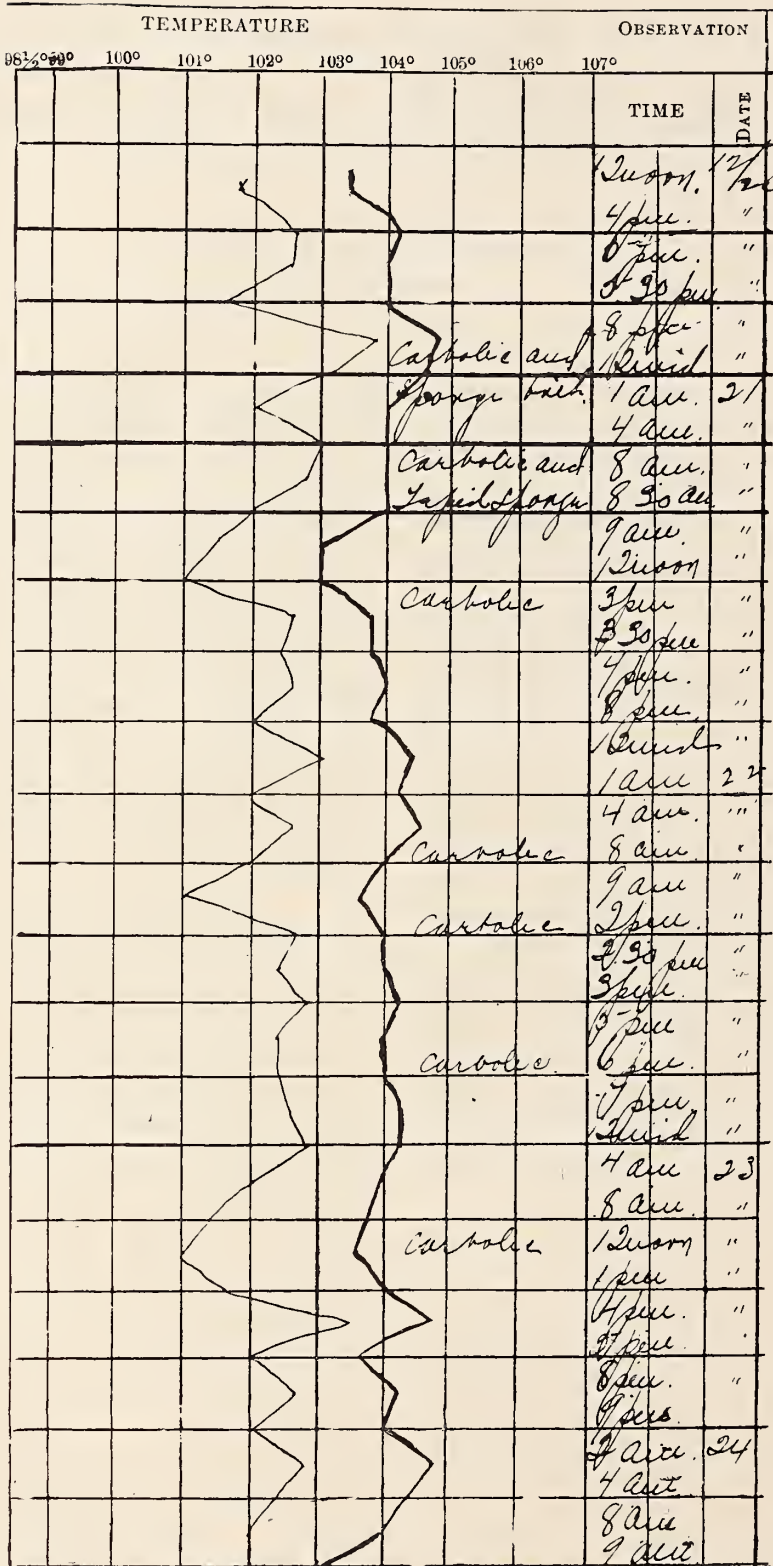 TEMPERATURE OBSERVATION
98½° 99° 100° 101° 102° 103° 104° 105° 106° 107°
TIME DATE
12 noon. 12/20
4 pm. "
6 pm. "
5 30 pm "
8 pm "
Carbolic and 12 mid "
Sponge bath. 1 am. 21
4 am. "
Carbolic and 8 am. "
Tepid Sponge 8 30 am "
9 am. "
12 noon "
Carbolic 3 pm "
3 30 pm "
4 pm. "
8 pm. "
12 mid "
1 am 22
4 am. "
Carbolic 8 am. "
9 am "
Carbolic 2 pm. "
2 30 pm "
3 pm. "
5 pm "
Carbolic. 6 pm. "
7 pm. "
12 mid "
4 am 23
8 am. "
Carbolic 12 noon "
1 pm "
4 pm. "
pm. "
8 pm. "
9 pm.
2 am. 24
4 am
8 am
9 am